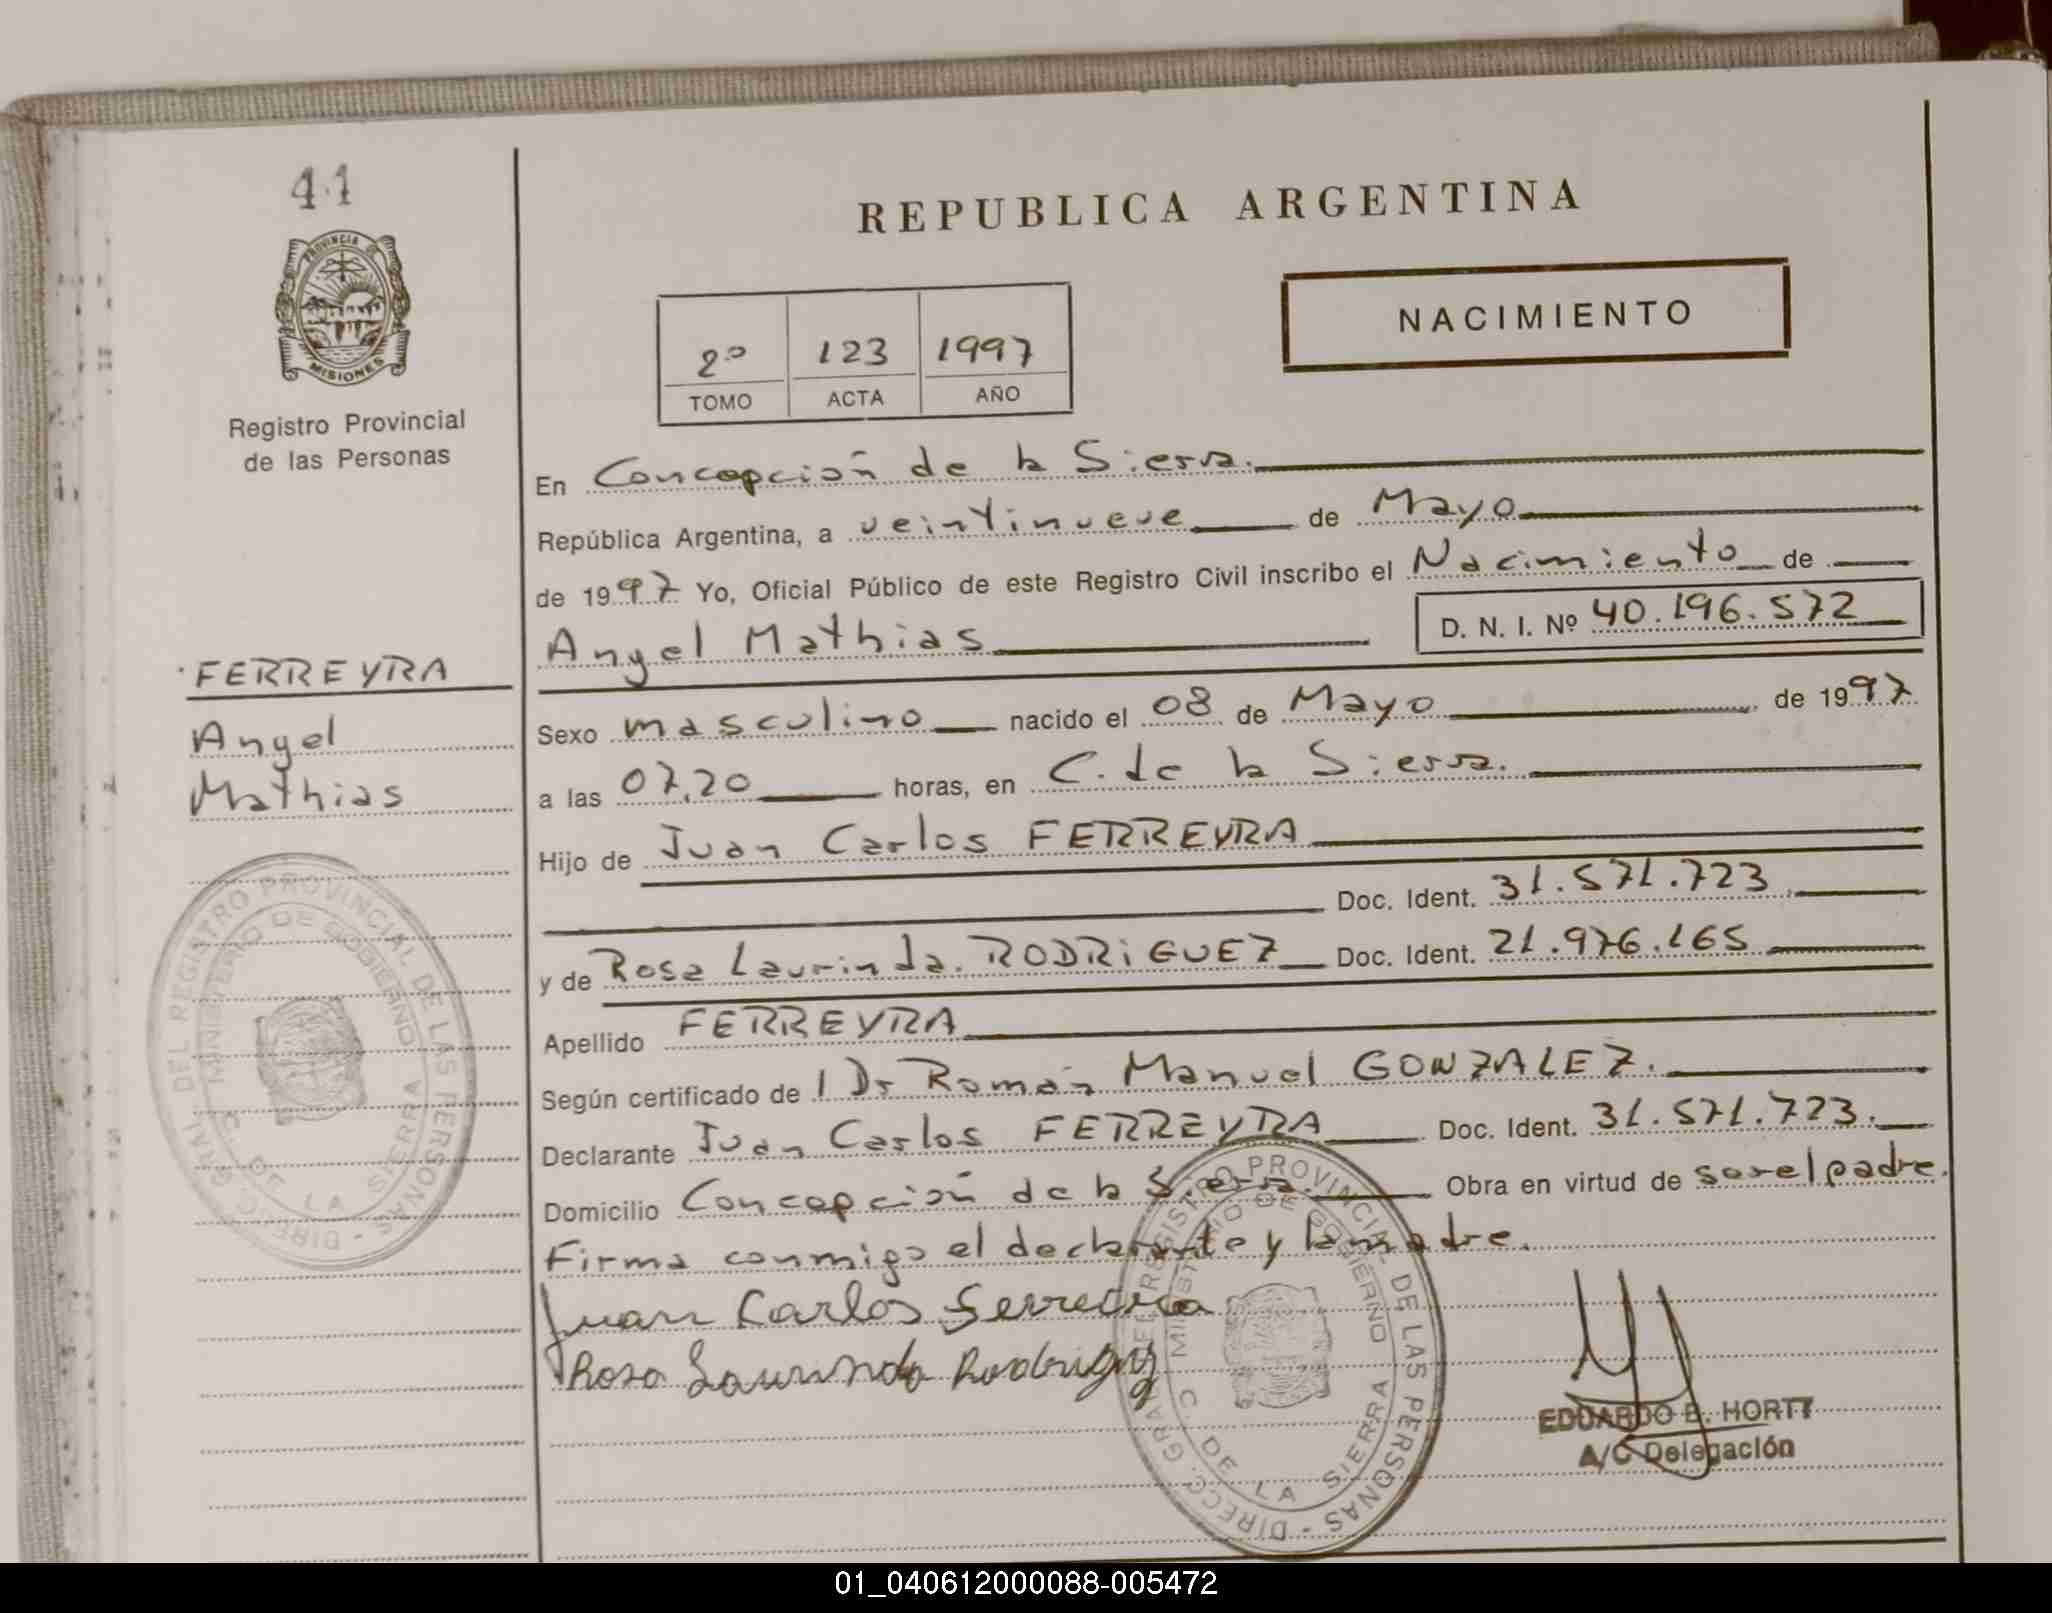 41
PROVINCIA
MISIONES
Registro Provincial
de las Personas
FERREYRA
Angel
Mathias
DIRECC. GRAL. DEL REGISTRO PROVINCIAL DE LAS PERSONAS
MINISTERIO DE GOBIERNO
C. DE LA SIERRA
REPUBLICA ARGENTINA
NACIMIENTO
2º 123 1997
TOMO ACTA AÑO
En Concepción de la Sierra.
República Argentina, a veintinueve de Mayo
de 1997 Yo, Oficial Público de este Registro Civil inscribo el Nacimiento de
Angel Mathias D. N. I. Nº 40.196.572
Sexo masculino nacido el 08 de Mayo de 1997
a las 07,20 horas, en C. de la Sierra.
Hijo de Juan Carlos FERREYRA
Doc. Ident. 31.571.723
y de Rosa Laurinda. RODRiGUEZ Doc. Ident. 21.976.165
Apellido FERREYRA
Según certificado de l Dr Román Manuel GONZALEZ.
Declarante Juan Carlos FERREYRA Doc. Ident. 31.571.723.
Domicilio Concepción de la Sierra. Obra en virtud de ser el padre.
Firma conmigo el declarante y la madre.
Juan Carlos Ferreyra
Rosa Laurinda Rodriguez
EDUARDO E. HORTT
A/C Delegación
DIRECC. GRAL. DEL REGISTRO PROVINCIAL DE LAS PERSONAS
MINISTERIO DE GOBIERNO
C. DE LA SIERRA
01_040612000088-005472